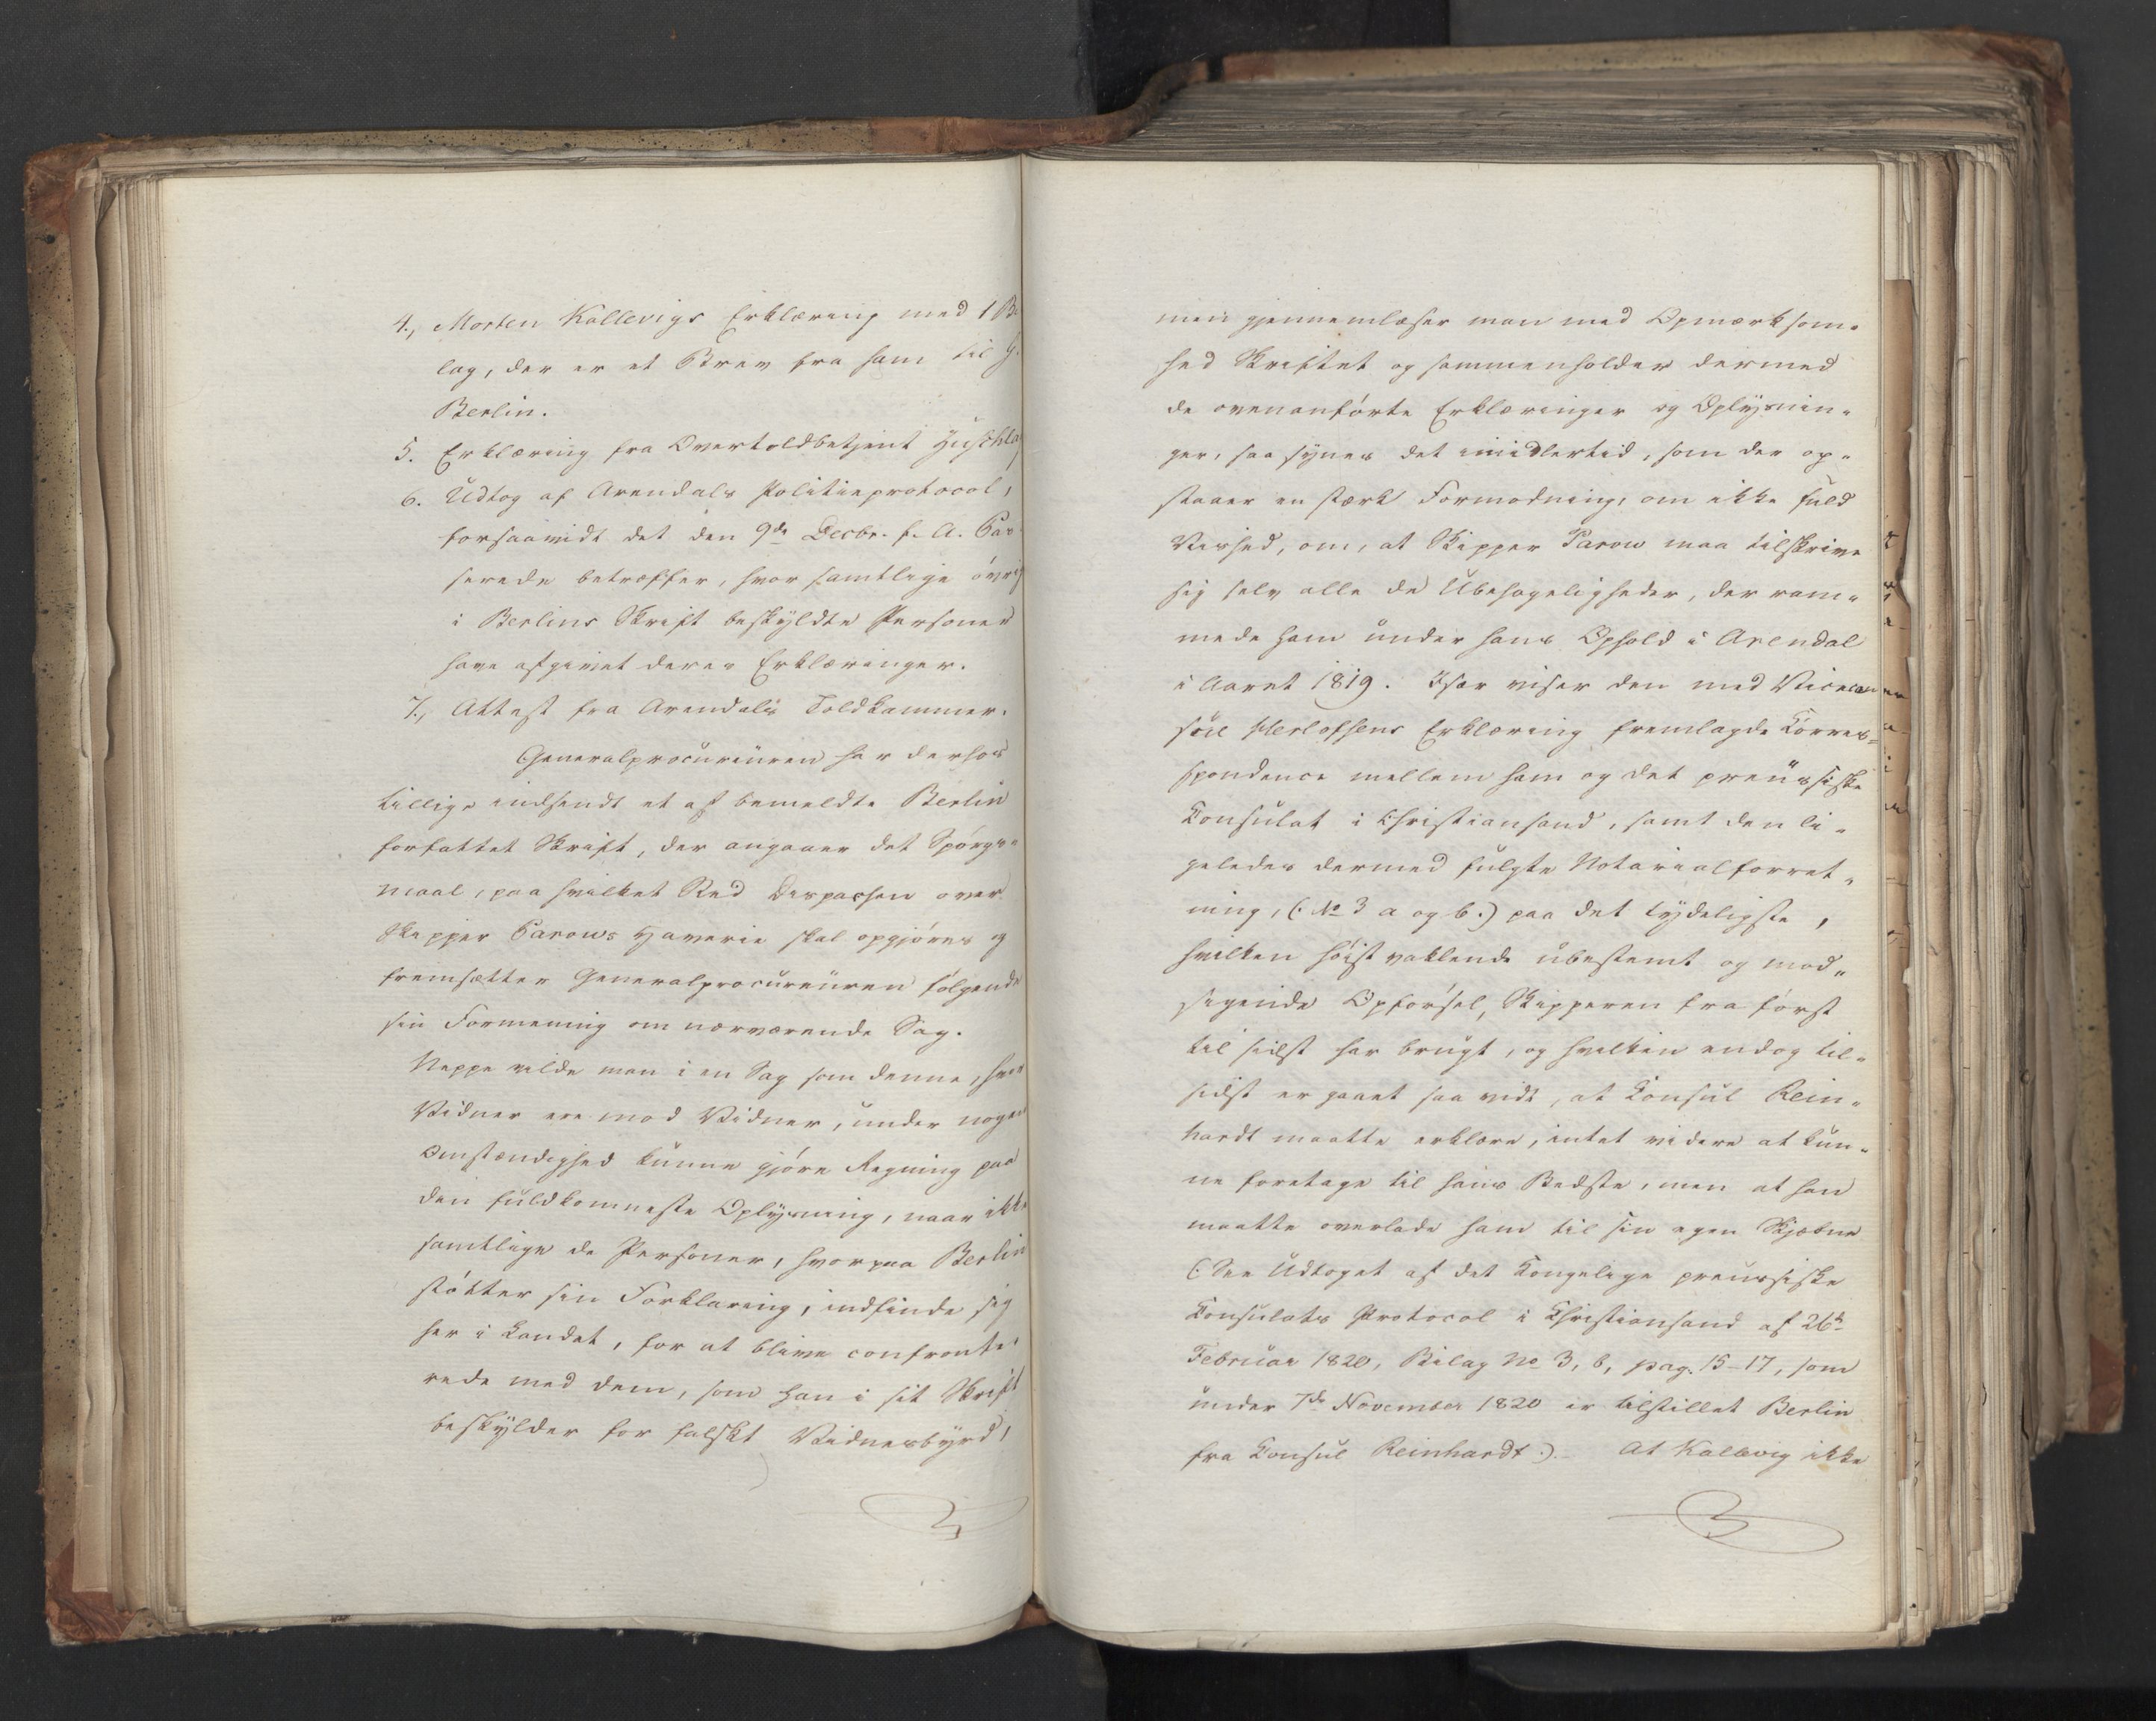 4., Morten Kallevigs Erklæring med 1 Bi
lag, der er et Brev fra ham til G.
Berlin.
5. Erklæring fra Overtoldbetjent
6. Udtog af Arendals Politieprotocol,
forsaavidt det den 9de Decbr. f. A. Pas
serede betræffer, hvor samtlige øvrige
i Berlins Skrift beskyldte Personer
have afgivet deres Erklæringer.
7., Attest fra Arendals Toldkammer.
Generalprocureuren har derhos
tillige indsendt et af bemeldte Berlin
forfattet Skrift, der angaaer det Spørgs-
maal, paa hvilket Sted Dispachen over
Skipper Parows Haverie skal opgjøres og
fremsætter Generalprocureuren følgende
sin Formening om nærværende Sag.
Neppe vilde man i en Sag som denne, hvor
Vidner ere mod Vidner, under nogen
Omstændighed kunne gjøre Regning paa
den fuldkomneste Oplysning, naar ikke
samtlige de Personer, hvorpaa Berlin
støtter sin Forklaring, indfinde sig
her i Landet, for at blive confronte-
rede med dem, som han i sit Skrift
beskylder for falskt Vidnesbyrd,
men gjennemlæser man med Opmærksom-
hed Skriftet og sammenholder dermed
de ovenanførte Erklæringer og Oplysnin-
ger, saa synes det imidlertid, som der op-
staaer en stærk Formodning, om ikke fuld
Vished, om, at Skipper Parow maa tilskrive
sig selv alle de Ubehageligheder, der ram-
mede ham under hans Ophold i Arendal
i Aaret 1819. Især viser den med Vicecon
sul Herlofsens Erklæring fremlagde Corres-
spondence mellem ham og det preussiske
Consulat i Christiansand, samt den li-
geledes dermed fulgte Notarialforret-
ning, (: No 3 a og b:) paa det tydeligste,
hvilken høist vaklende ubestemt og mod-
sigende Opførsel, Skipperen fra først
til sidst har brugt, og hvilken endog til-
sidst er gaaet saa vidt, at Consul Rein-
hardt maatte erklære, intet videre at kun-
ne foretage til hans Bedste, men at han
maatte overlade ham til sin egen Skjæbne
(: See Udtoget af det Kongelige preussiske
Consulats Protocol i Christiansand af 26de
Februar 1820, Bilag No 3, b, pag. 15-17, som
under 7de November 1820 er tilstillet Berlin
fra Consul Reinhardt :).- At Kallevig ikke